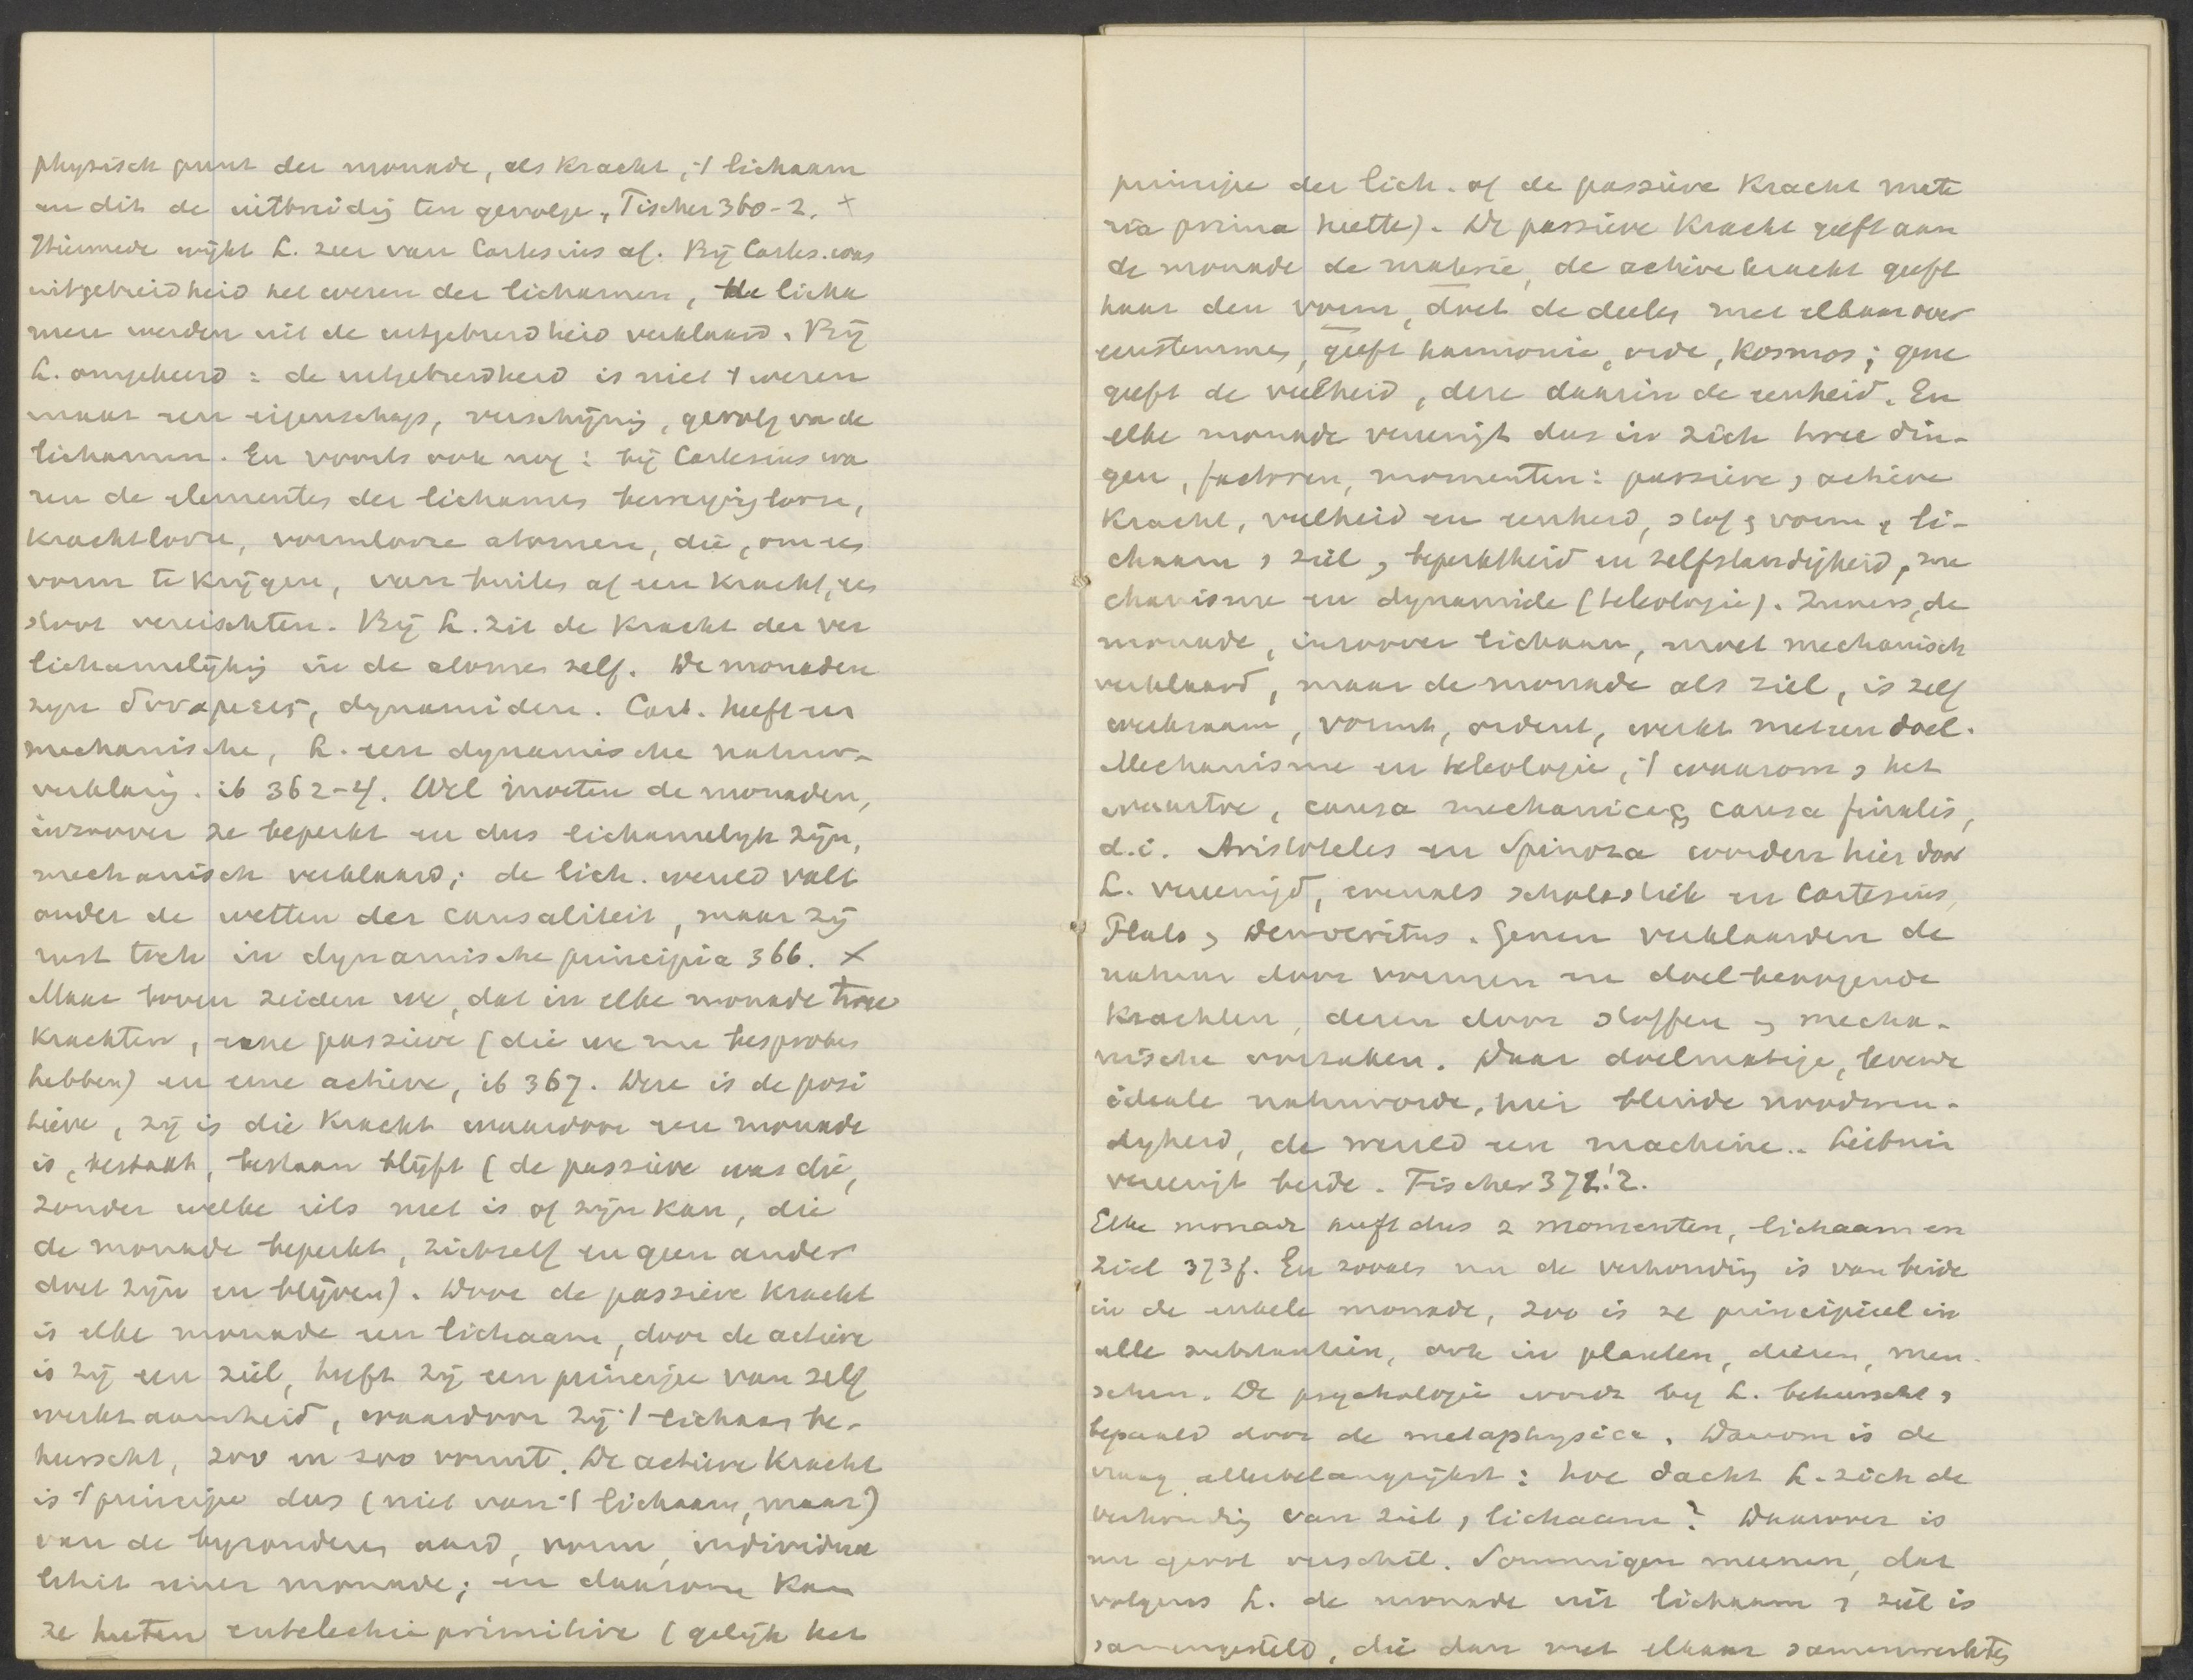 physisch punt der monade, als kracht, 't lichaam
en dit de uitbreidig ten gevolge, Fischer 360-2. ×
Hiermede wijkt L. zeer van Cartesius af. Bij Cartes. was
uitgebreidheid het wezen der lichamen, de licha
men werden uit de uitgebreidheid verklaard. Bij
L. omgekeerd: de uitgebreidheid is niet 't wezen
maar een eigenschap, verschijnig, gevolg va de
lichamen. En voorts ook nog: bij Cartesius wa
ren de elementen der lichamen bewegigloze,
krachtlooze, vormlooze atomen, die, om een
vorm te krijgen, van buiten af een kracht, een
stoot vereischten. Bij L. zit de kracht der ver
lichamelijkig in de atomen zelf. De monaden
zijn δυναμεις, dynamiden. Cart. heeft een
mechanische, L. een dynamische natuur-
verklarig. ib 362-4. Wel moeten de monaden,
inzoover ze beperkt en dus lichamelijk zijn,
mechanisch verklaard; de lich. wereld valt
onder de wetten der causaliteit, maar zij
rust toch in dynamische principia 366. ×
Maar boven zeiden we, dat in elke monade twee
krachten, eene passieve (die we nu besproken
hebben) en eene actieve, ib 367. Deze is de posi
tieve, zij is die kracht waardoor een monade
is, bestaat, bestaan blijft (de passieve was die,
zonder welke iets niet is of zijn kan, die
de monade beperkt, zichzelf en geen ander
doet zijn en blijven). Door de passieve kracht
is elke monade een lichaam, door de actieve
is zij een ziel, heeft zij een principe van zelf
werkzaamheid, waardoor zij 't lichaam be-
heerscht, zoo en zoo vormt. De actieve kracht
is 't principe dus (niet van 't lichaam, maar)
van de byzonderen aard, vorm, individua
liteit eener monade; en daarom kan
ze heeten entelechie primitive (gelijk het
principe der lich. of de passieve kracht mate
ria prima heette). De passieve kracht geeft aan
de monade de materie, de actieve kracht geeft
haar den vorm, doet de deelen met elkaar over
eenstemmen, geeft harmonie, orde, kosmos; gene
geeft de veelheid, deze daarin de eenheid. En
elke monade vereenigt dus in zich twee din-
gen, factoren, momenten: passieve, actieve
kracht, veelheid en eenheid, stof en vorm, li-
chaam, ziel, beperktheid en zelfstandigheid, me
chanisme en dynamide (teleologie). Zeuers, de
monade, inzoover lichaam, moet mechanisch
verklaard, maar de monade als ziel, is zelf
werkzaam, vormt, ordent, werkt met een doel.
Mechanisme en teleologie, 't waarom, het
waartoe, causa mechanica en causa finalis,
d.i. Aristoteles en Spinoza worden hier door
L. vereenigd, evenals scholastiek en Cartesius,
Plato, Democritus. Genen verklaarden de
natuur door vormen en doel-beoogende
krachten, dezen door stoffen, mecha-
nische oorzaken. Daar doelmatige, levende
ideale natuurorde, hier blinde noodwen-
digheid, de wereld een machine.. Leibniz
vereenigt beide. Fischer 371.2.
Elke monade heeft dus 2 momenten, lichaam en
ziel 373f. En zooals nu de verhoudig is van beide
in de enkele monade, zoo is ze principieel in
alle substantien, ook in planten, dieren, men-
schen. De psychologie wordt by L. beheerscht,
bepaald door de metaphysica. Daarom is de
vraag allerbelangrijkst: hoe dacht L. zich de
verhoudig van ziel, lichaam? Daarover is
nu groot verschil. Sommigen meenen, dat
volgens L. de monade uit lichaam, ziel is
samengesteld, die dan met elkaar samenwerkten